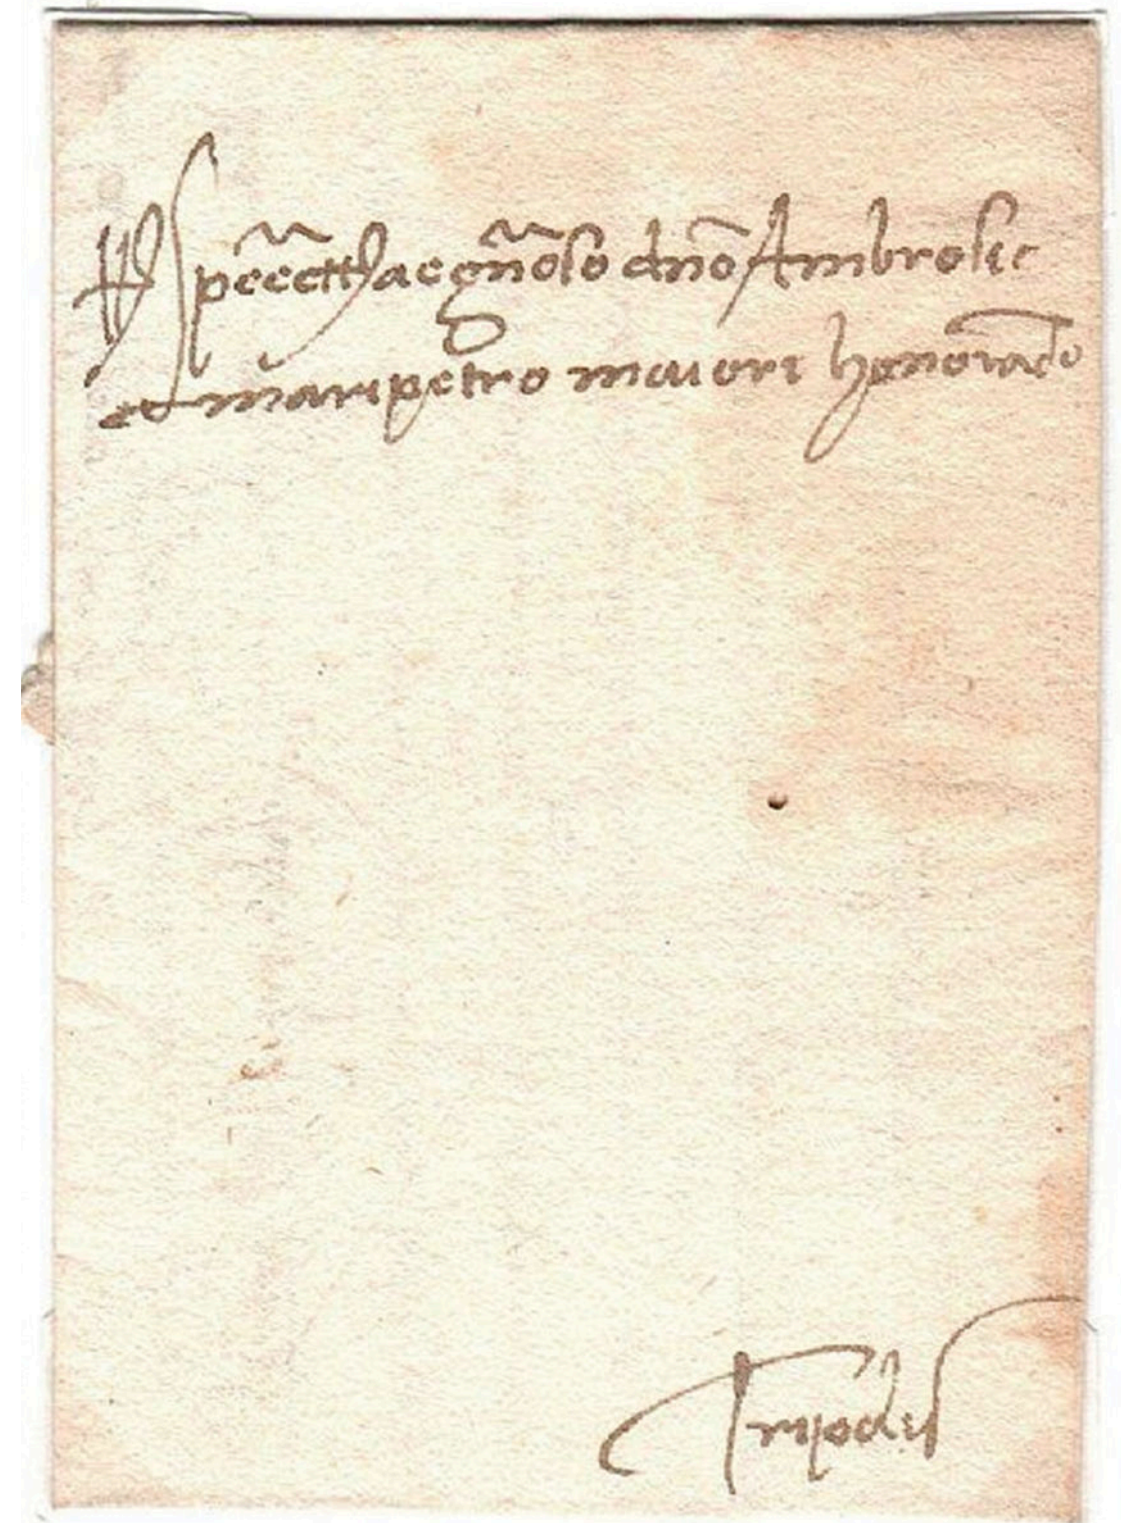 Spectt ac gñoso dno Ambrosio
et maripetro maiori honorado
Tripolis